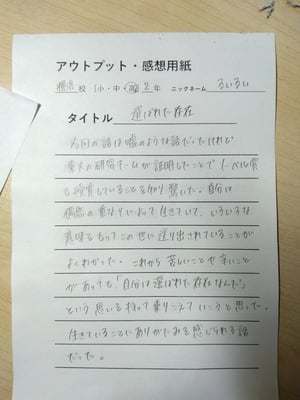 アウトプット・感想用紙
橋本校 小・中・高 2年 ニックネーム るいるい
タイトル 選ばれた存在
今回の話は嘘のような話だったけれど
東大の研究チームが証明したことでノーベル賞
も受賞していることを知り驚いた。自分は
偶然の重なりによって生きていて、いろいろな
意味をもってこの世に送り出されていることが
よくわかった。これから苦しいことや辛いこと
があっても「自分は選ばれた存在なんだ」
という思いを持って乗りこえていこうと思った。
生きていることにありがたみを感じられる話
だった。